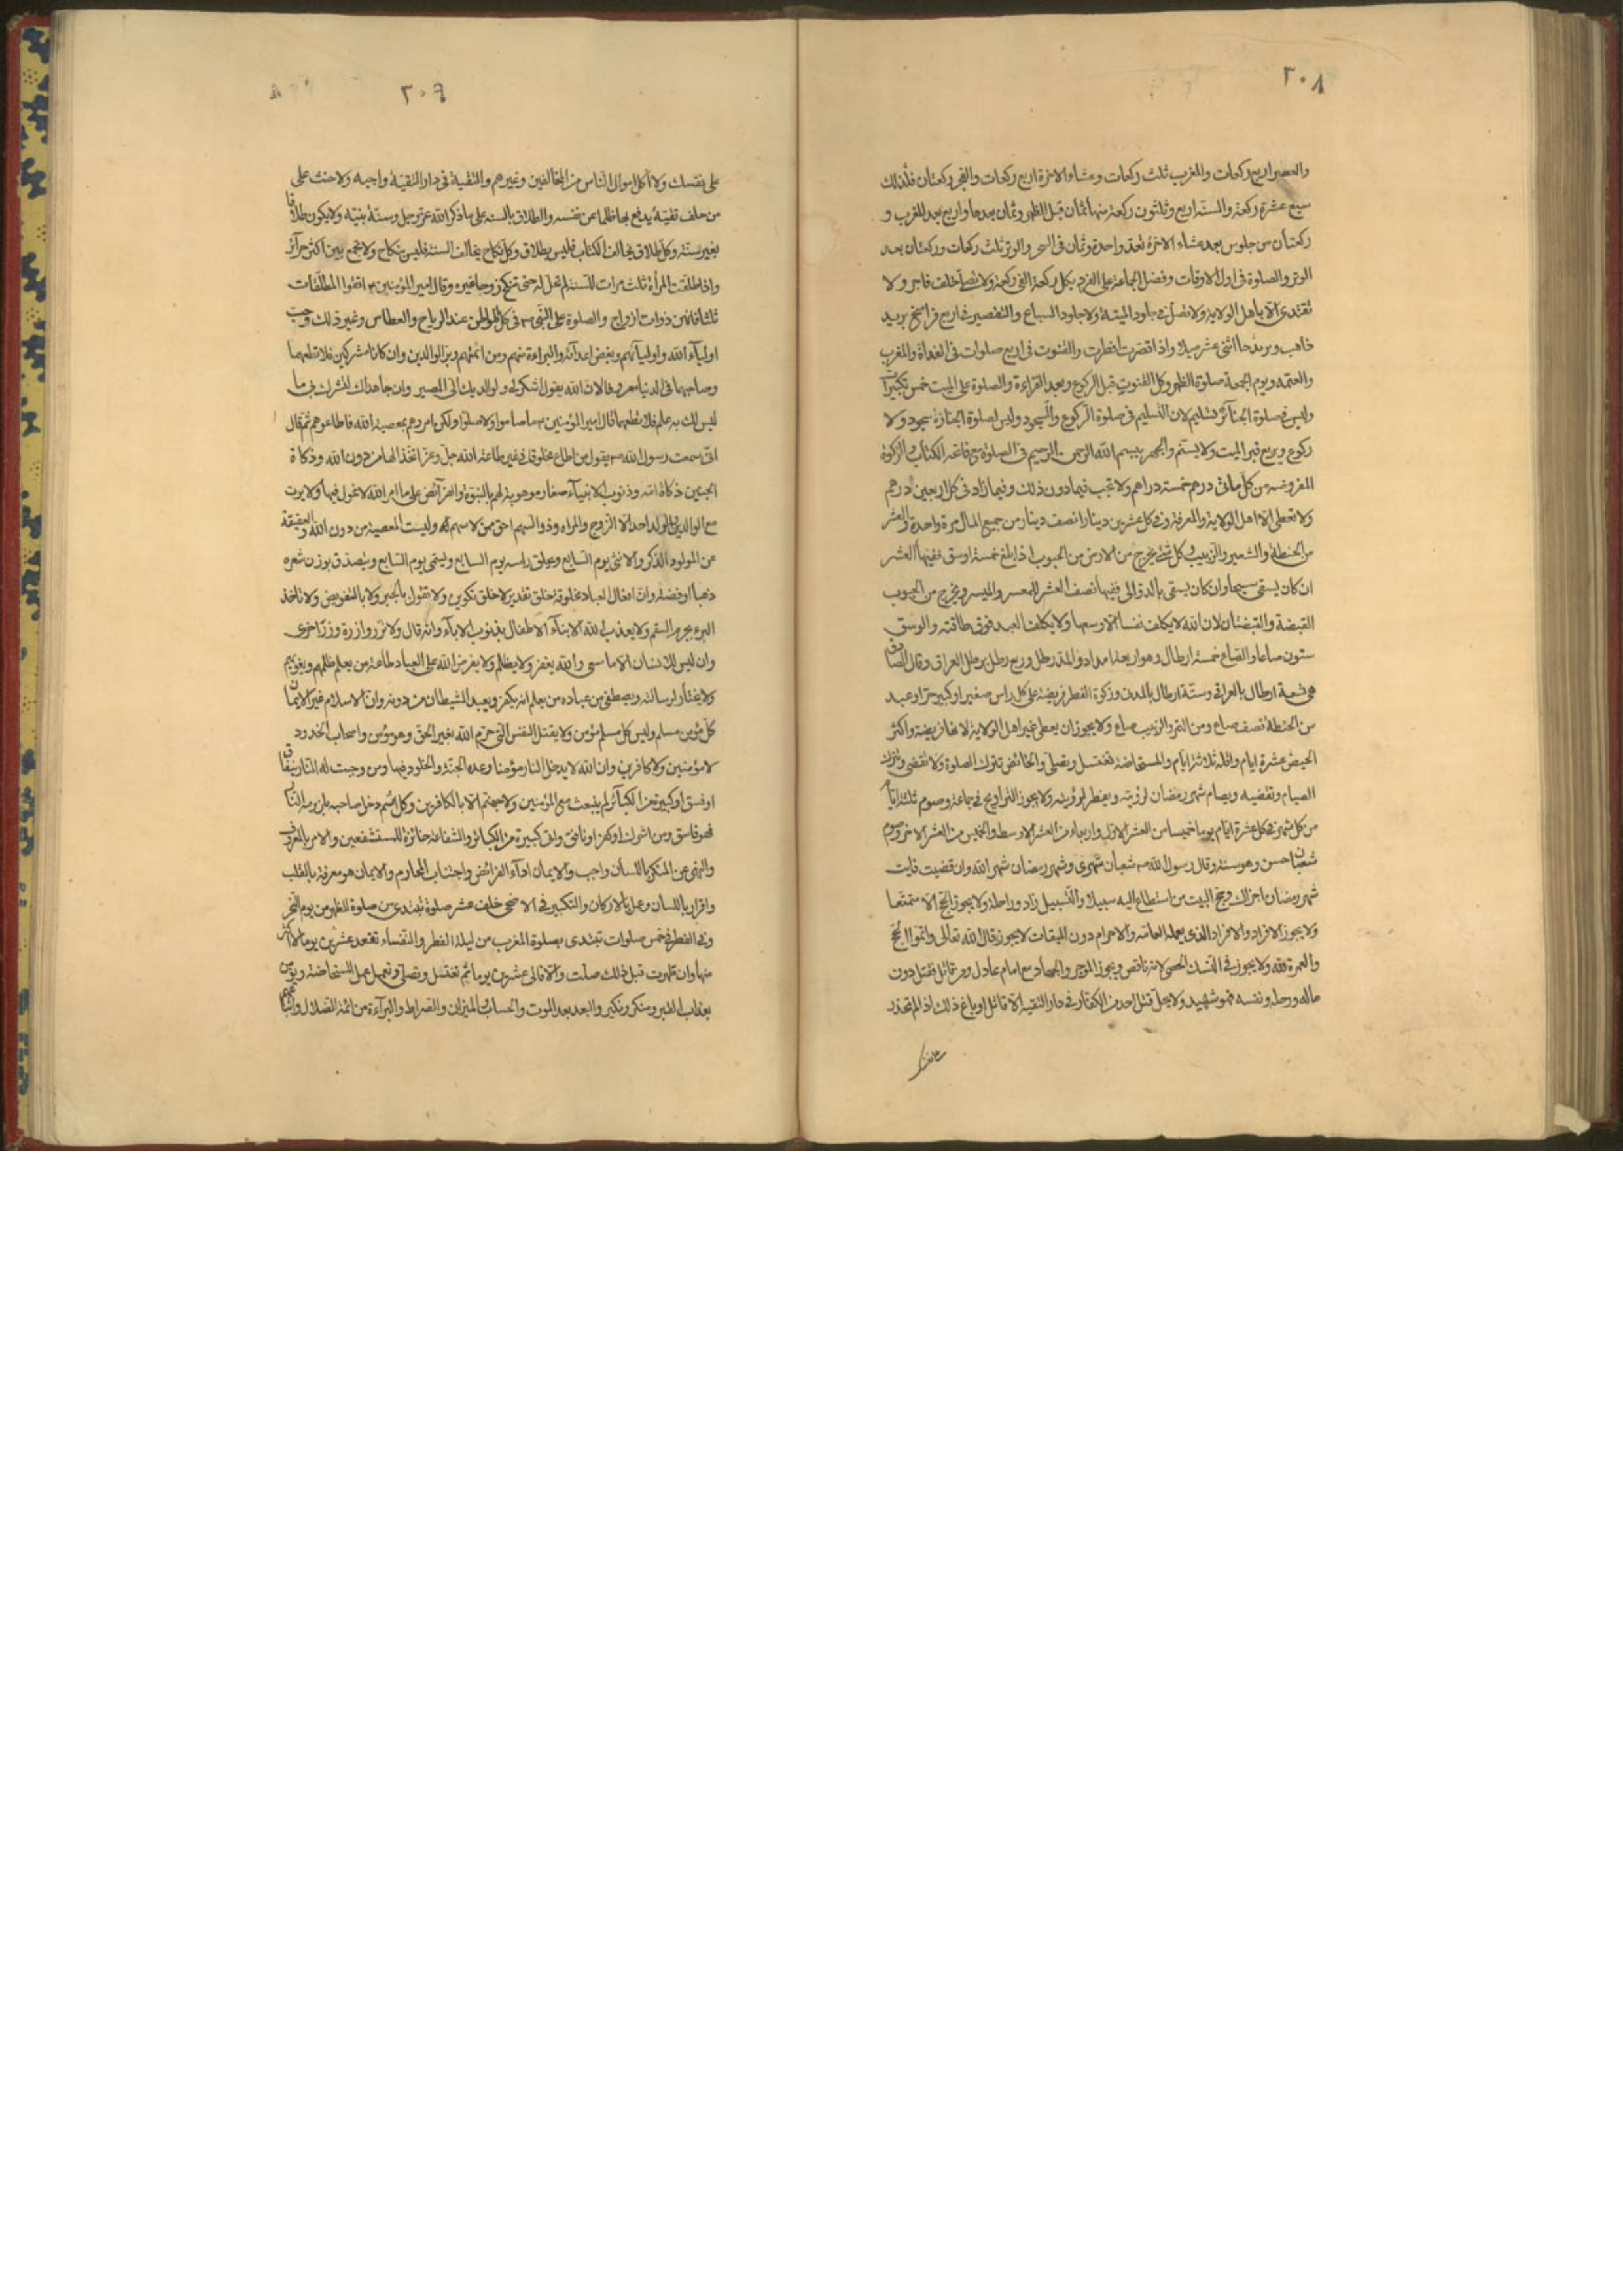 ٢٠٨
والعصر اربع ركعات والمغرب ثلث ركعات وعشاء الاخرة اربع ركعات والفجر ركعتان فذلك
سبع عشرة ركعة والسنة اربع وثلثون ركعة منها ثمان قبل الظهر وثمان بعدها واربع بعد المغرب و
ركعتان من جلوس بعد عشاء الاخرة تعد واحدة وثمان في السحر والوتر ثلث ركعات وركعتان بعد
الوتر والصلوة في اول الاوقات وفضل الجماعة على الفرد بكل ركعة الفي ركعة ولا تصل خلف فاجر ولا
تقتدى الا باهل الولاية ولا تصل في جلود الميتة ولا جلود السباع والتقصير في اربع فراسخ بريد
ذاهب وبريد جا اثنى عشر ميلا واذا قصرت افطرت والقنوت في اربع صلوات في الغداة والمغرب
والعتمة ويوم الجمعة صلوة الظهر وكل القنوت قبل الركوع وبعد القراءة والصلوة على الميت خمس تكبيرات
وليس في صلوة الجنائز تسليم لان التسليم في صلوة الركوع والسجود وليس لصلوة الجنازة سجود ولا
ركوع ويربع قبر الميت ولا يسنم والجهر ببسم الله الرحمن الرحيم في الصلوة مع فاتحة الكتاب والزكوة
المفروضة من كل مائتي درهم خمسة دراهم ولا تجب فيما دون ذلك وفيما زاد في كل اربعين درهم
ولا تعطى الا اهل الولاية والمعرفة وفي كل عشرين دينارا نصف دينار من جميع المال مرة واحدة والعشر
من الحنطة والشعير والزبيب وكل شئ يخرج من الارض من الحبوب اذا بلغ خمسة اوسق ففيها العشر
ان كان يسقى سيحا وان كان يسقى بالدوالى ففيها نصف العشر للمعسر والميسر ويخرج من الحبوب
القبضة والقبضتان لان الله لا يكلف نفسا الا وسعها ولا يكلف العبد فوق طاقته والوسق
ستون صاعا والصاع خمسة ارطال وهو اربعة امداد والمد رطل وربع رطل برطل العراق وقال الصادق
هي تسعة ارطال بالعراقى وستة ارطال بالمدنى وزكوة الفطر فريضة على كل راس صغير او كبير حر او عبد
من الحنطة نصف صاع ومن التمر والزبيب صاع ولا يجوز ان يعطى غير اهل الولاية لانها فريضة واكثر
الحيض عشرة ايام واقله ثلاثة ايام والمستحاضة تغتسل وتصلى والحائض تترك الصلوة ولا تقضى وتترك
الصيام وتقضيه ويصام شهر رمضان لرؤيته ويفطر لرؤيته ولا يجوز التراويح في جماعة وصوم ثلثة ايام
من كل شهر في كل عشرة ايام يوما خميسا من العشر الاول واربعاء من العشر الاوسط والخميس من العشر الاخر وصوم
شعبان حسن وهو سنة وقال رسول الله ص شعبان شهرى وشهر رمضان شهر الله وان قضيت فايت
شهر رمضان اجزاك وحج البيت من استطاع اليه سبيلا والسبيل زاد وراحلة ولا يجوز الحج الا متمتعا
ولا يجوز الافراد والاقران الذى يعمله العامة والاحرام دون الميقات لا يجوز قال الله تعالى واتموا الحج
والعمرة لله ولا يجوز في النسك الخصى لانه ناقص ويجوز الموجر والجهاد مع امام عادل ومن قاتل فقتل دون
ماله ورحله ونفسه فهو شهيد ولا يحل قتل احد من الكفار في دار التقية الا قاتل او باغ ذلك اذا لم تحذر
على نفسك
٢٠٩
على نفسك ولا اكل اموال الناس من المخالفين وغيرهم والتقية في دار التقية واجبة ولا حنث على
من حلف تقية يدفع بها ظلما عن نفسه والطلاق بالسنة على ما ذكر الله عز وجل وسنة نبيه ولا يكون طلاقا
بغير سنة وكل طلاق يخالف الكتاب فليس بطلاق وكل نكاح يخالف السنة فليس بنكاح ولا تجمع بين اكثر من اربع حرائر
واذا طلقت المرأة ثلث مرات للسنة لم تحل له حتى تنكح زوجا غيره وقال امير المؤمنين ع اتقوا المطلقات
ثلثا فانهن ذوات ازواج والصلوة على النبى ص في كل المواطن عند الرياح والعطاس وغير ذلك وحب
اولياء الله واوليائهم وبغض اعدائه والبراءة منهم ومن ائمتهم وبر الوالدين وان كانا مشركين فلا تطعهما
وصاحبهما في الدنيا معروفا لان الله يقول اشكر لى ولوالديك الى المصير وان جاهداك لتشرك بى ما
ليس لك به علم فلا تطعهما قال امير المؤمنين ع ما صاموا ولا صلوا ولكن امروهم بمعصية الله فاطاعوهم ثم قال
انى سمعت رسول الله ص يقول من اطاع مخلوقا في غير طاعة الله جل وعز اتخذ الها من دون الله وذكاة
الجنين ذكاة امه وذنوب الانبياء صغار موهوبة لهم بالنبوة والفرائض على ما امر الله لا عول فيها ولا يرث
مع الوالدين والولد احد الا الزوج والمراة وذو السهم احق ممن لا سهم له وليست العصبة من دين الله والعقيقة
عن المولود الذكر والانثى يوم السابع ويحلق راسه يوم السابع ويسمى يوم السابع ويتصدق بوزن شعره
ذهبا او فضة وان افعال العباد مخلوقة خلق تقدير لا خلق تكوين ولا تقول بالجبر ولا بالتفويض ولا تاخذ
البرئ بجرم السقيم ولا يعذب الله الابناء الاطفال بذنوب الاباء وانه قال ولا تزر وازرة وزر اخرى
وان ليس للانسان الا ما سعى والله يغفر ولا يظلم ولا يفرض الله على العباد طاعة من يعلم يظلمهم ويغويهم
ولا يختار لرسالته ويصطفى من عباده من يعلم انه يكفر ويعبد الشيطان من دونه وان الاسلام غير الايمان
كل مؤمن مسلم وليس كل مسلم مؤمن ولا يقتل النفس التى حرم الله بغير الحق وهو مؤمن واصحاب الحدود
لا مؤمنين ولا كافرين وان الله لا يدخل النار مؤمنا وعده الجنة والخلود فيها ومن وجبت له النار بنفاق
او فسق او كبيرة من الكبائر لم يبعث مع المؤمنين ولا جهنم الا بالكافرين وكل اثم دخل صاحبه بلزومه النار
فهو فاسق ومن اشرك او كفر او نافق واتى كبيرة من الكبائر والشفاعة جائزة للمستشفعين والامر بالمعروف
والنهى عن المنكر باللسان واجب والايمان اداء الفرائض واجتناب المحارم والايمان هو معرفة بالقلب
واقرار باللسان وعمل بالاركان والتكبير في الاضحى خلف عشر صلوة تبتدى من صلوة الظهر من يوم النحر
وفي الفطر في خمس صلوات تبتدى بصلوة المغرب من ليلة الفطر والنفساء تقعد عشرين يوما لا اكثر
منها وان طهرت قبل ذلك صلت والا فالى عشرين يوما ثم تغتسل وتصلى وتعمل عمل المستحاضة ويؤمن
بعذاب القبر ومنكر ونكير والبعث بعد الموت والحساب والميزان والصراط والبراءة من ائمة الضلال واتباعهم